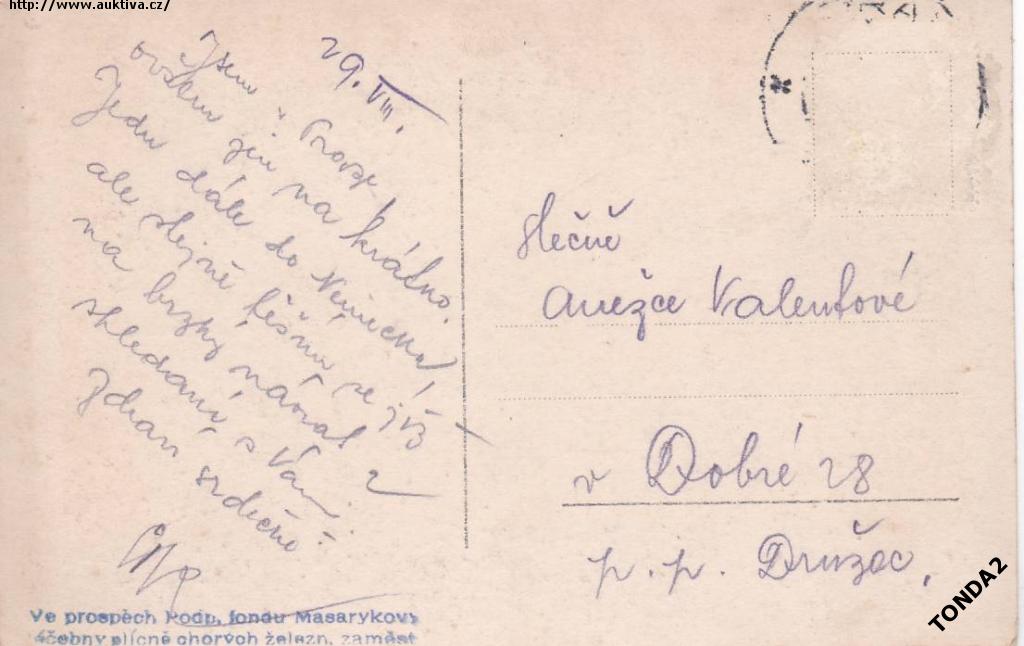 http://www.auktiva.cz/
29. VIII.
Jsem v Praze
ovšem jen na krátko.
Jedu dále do Německa,
ale stejně těším se již
na brzký návrat a
shledání s Vámi.
Zdraví srdečně
Slečně
Anežce Valentové
v Dobré 28
p. p. Družec,
Ve prospěch Podp. fondu Masarykovy
léčebny plícně chorých železn. zaměst
TONDA2